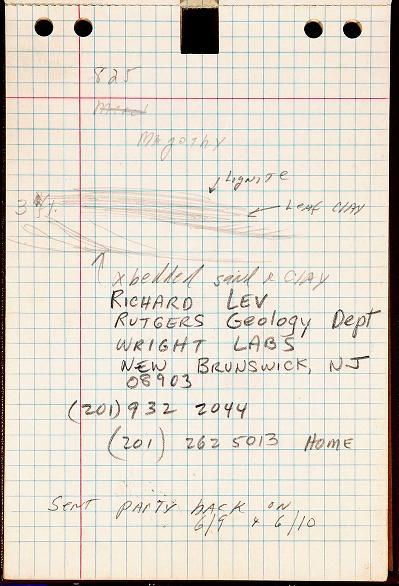 825
Magothy
Lignite
Leaf CLAY
3 ft.
xbedded sand & CLAY
RICHARD LEV
RUTGERS Geology Dept
WRIGHT LABS
NEW BRUNSWICK, NJ
08903
(201) 932 2044
(201) 262 5013 HOME
Sent party back on
6/9 & 6/10